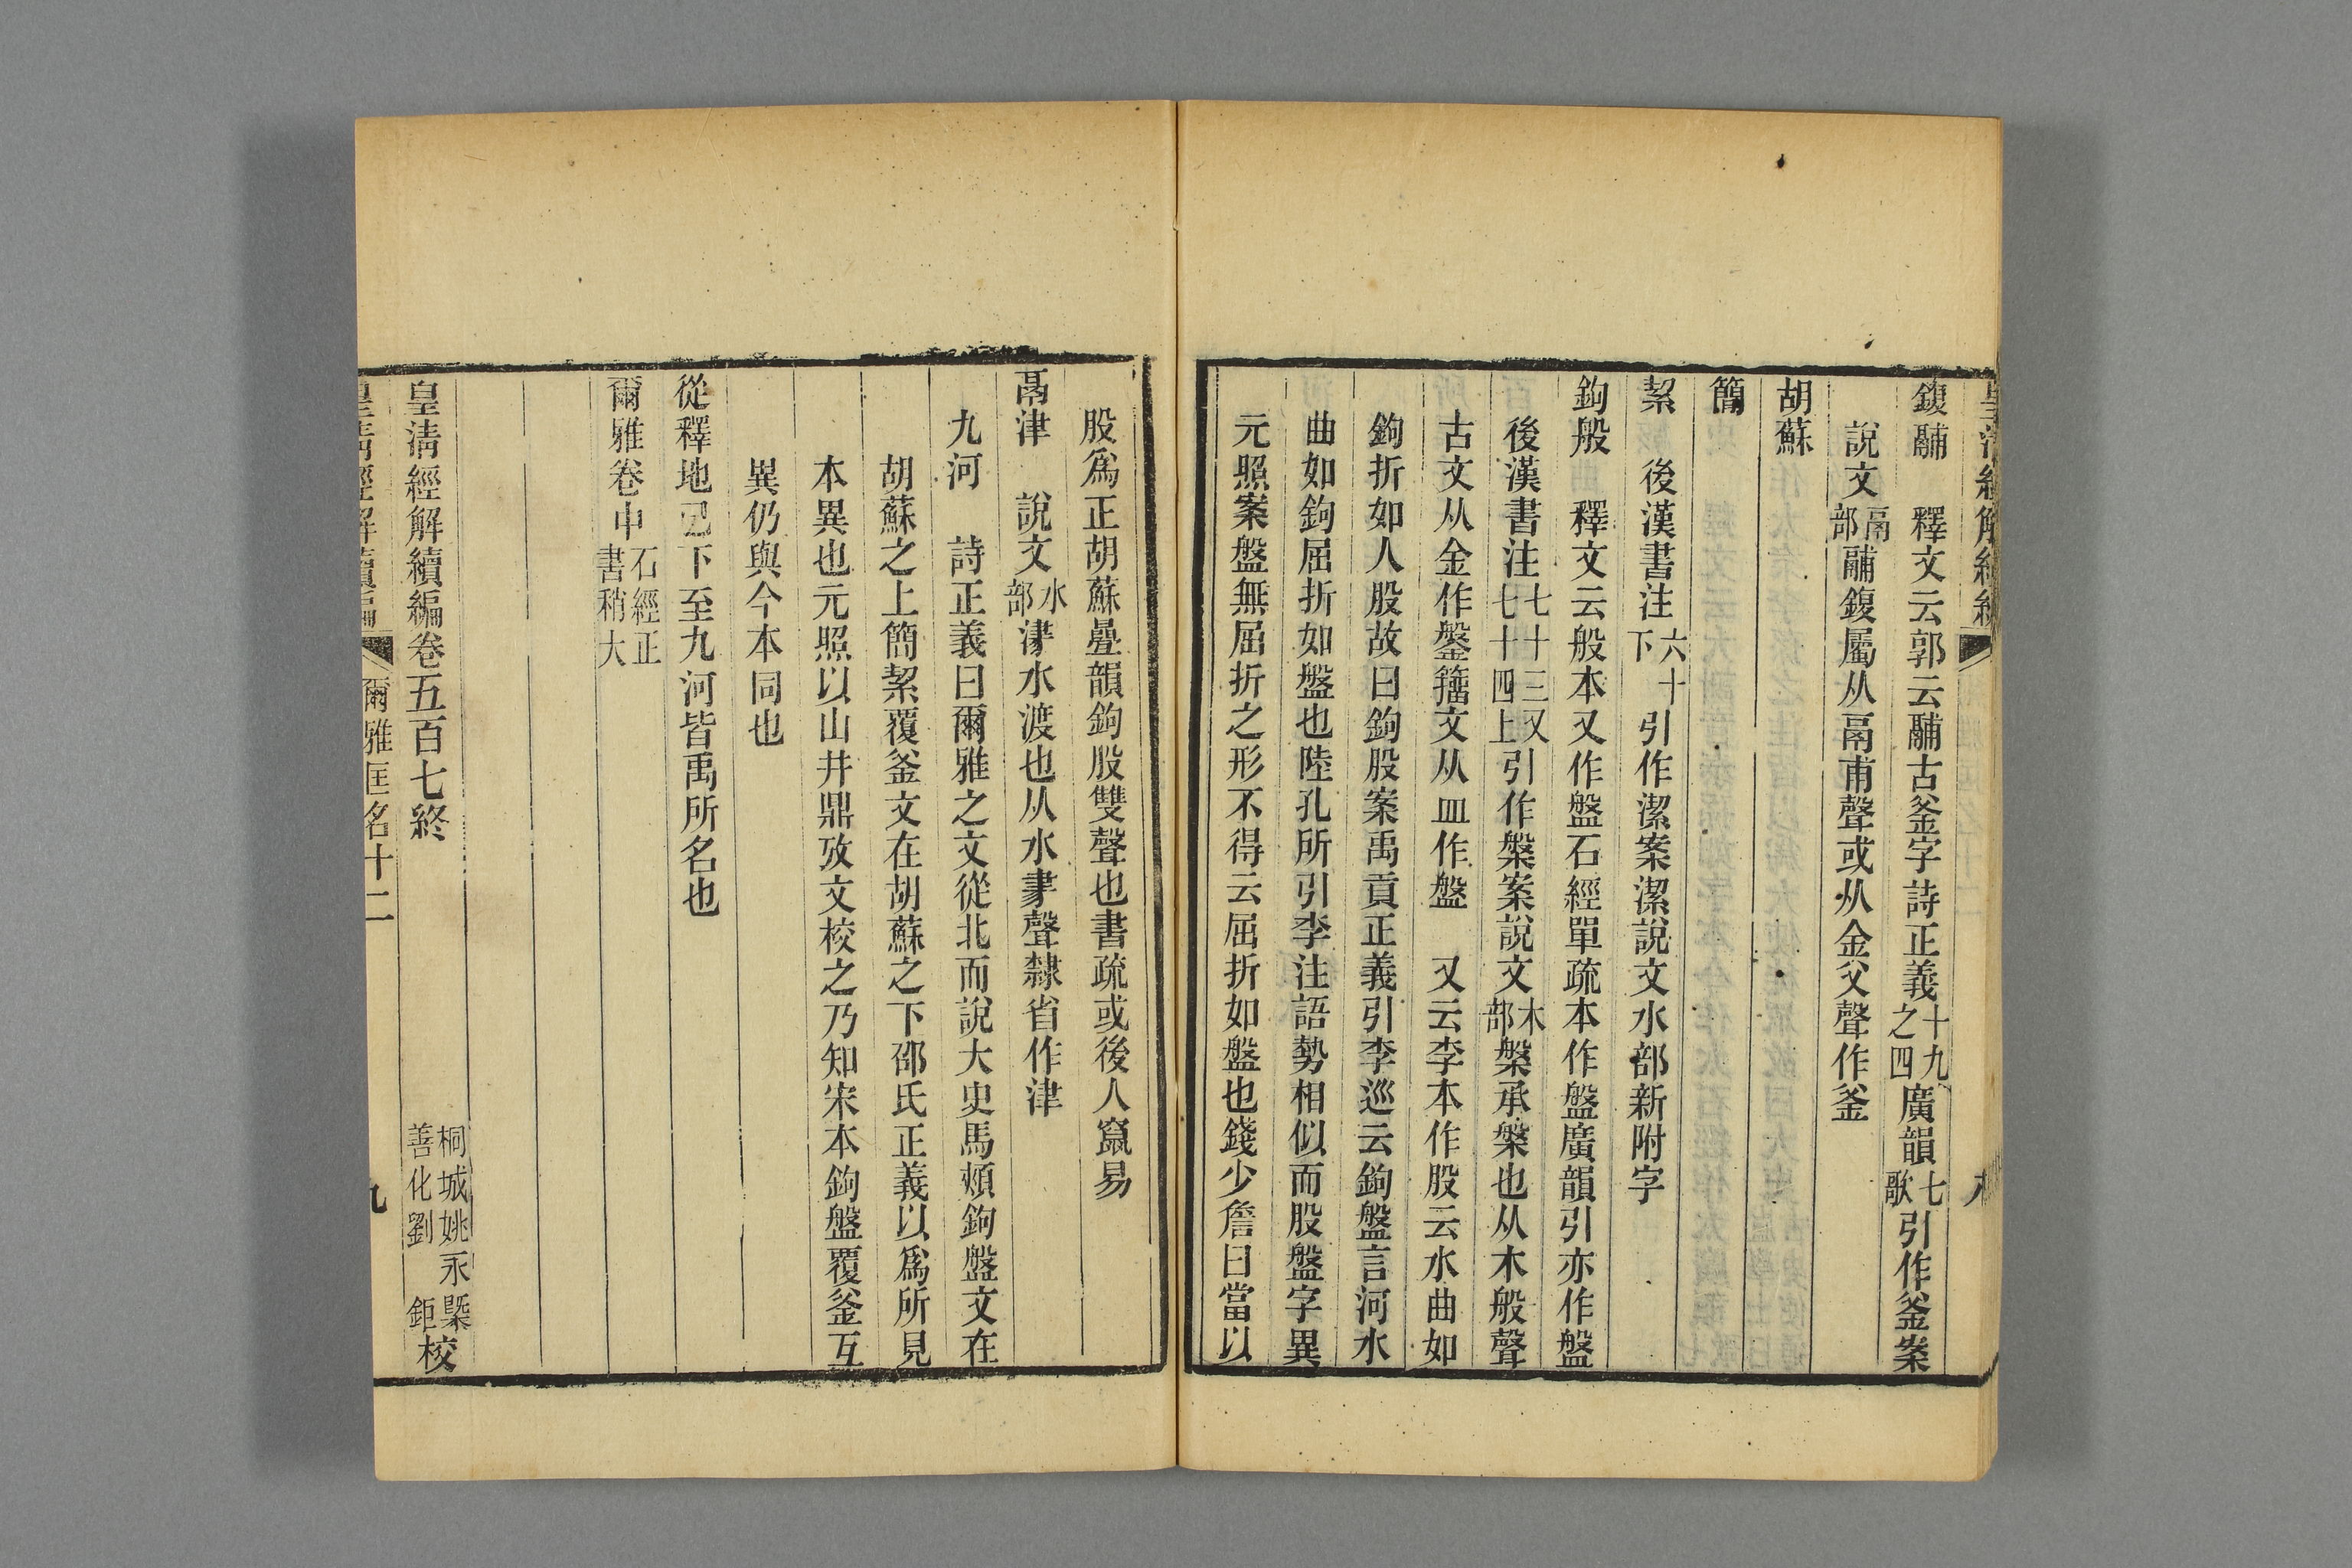 鍑鬴　釋文云郭云鬴古釜字詩正義十九之四廣韻七歌引作釜案
說文鬲部鬴鍑屬从鬲甫聲或从金父聲作釜
胡蘇
簡
絜　後漢書注六十下引作潔案潔說文水部新附字
鉤般　釋文云般本又作盤石經單疏本作盤廣韻引亦作盤
後漢書注七十三又七十四上引作槃案說文木部槃承槃也从木般聲
古文从金作鎜籒文从皿作盤　又云李本作股云水曲如
鉤折如人股故曰鉤股案禹貢正義引李巡云鉤盤言河水
曲如鉤屈折如盤也陸孔所引李注語勢相似而股盤字異
元照案盤無屈折之形不得云屈折如盤也錢少詹曰當以
股爲正胡蘇疊韻鉤股雙聲也書疏或後人竄易
鬲津　說文水部津水渡也从水𦘔聲隸省作津
九河　詩正義曰爾雅之文從北而說大史馬頰鉤盤文在
胡蘇之上簡絜覆釜文在胡蘇之下邵氏正義以爲所見
本異也元照以山井鼎攷文校之乃知宋本鉤盤覆釜互
異仍與今本同也
從釋地已下至九河皆禹所名也
爾雅卷中石經正書稍大
皇清經解續編卷五百七終
桐城姚永㮣
善化劉　鉅校
皇清經解續編　爾雅匡名十二　九